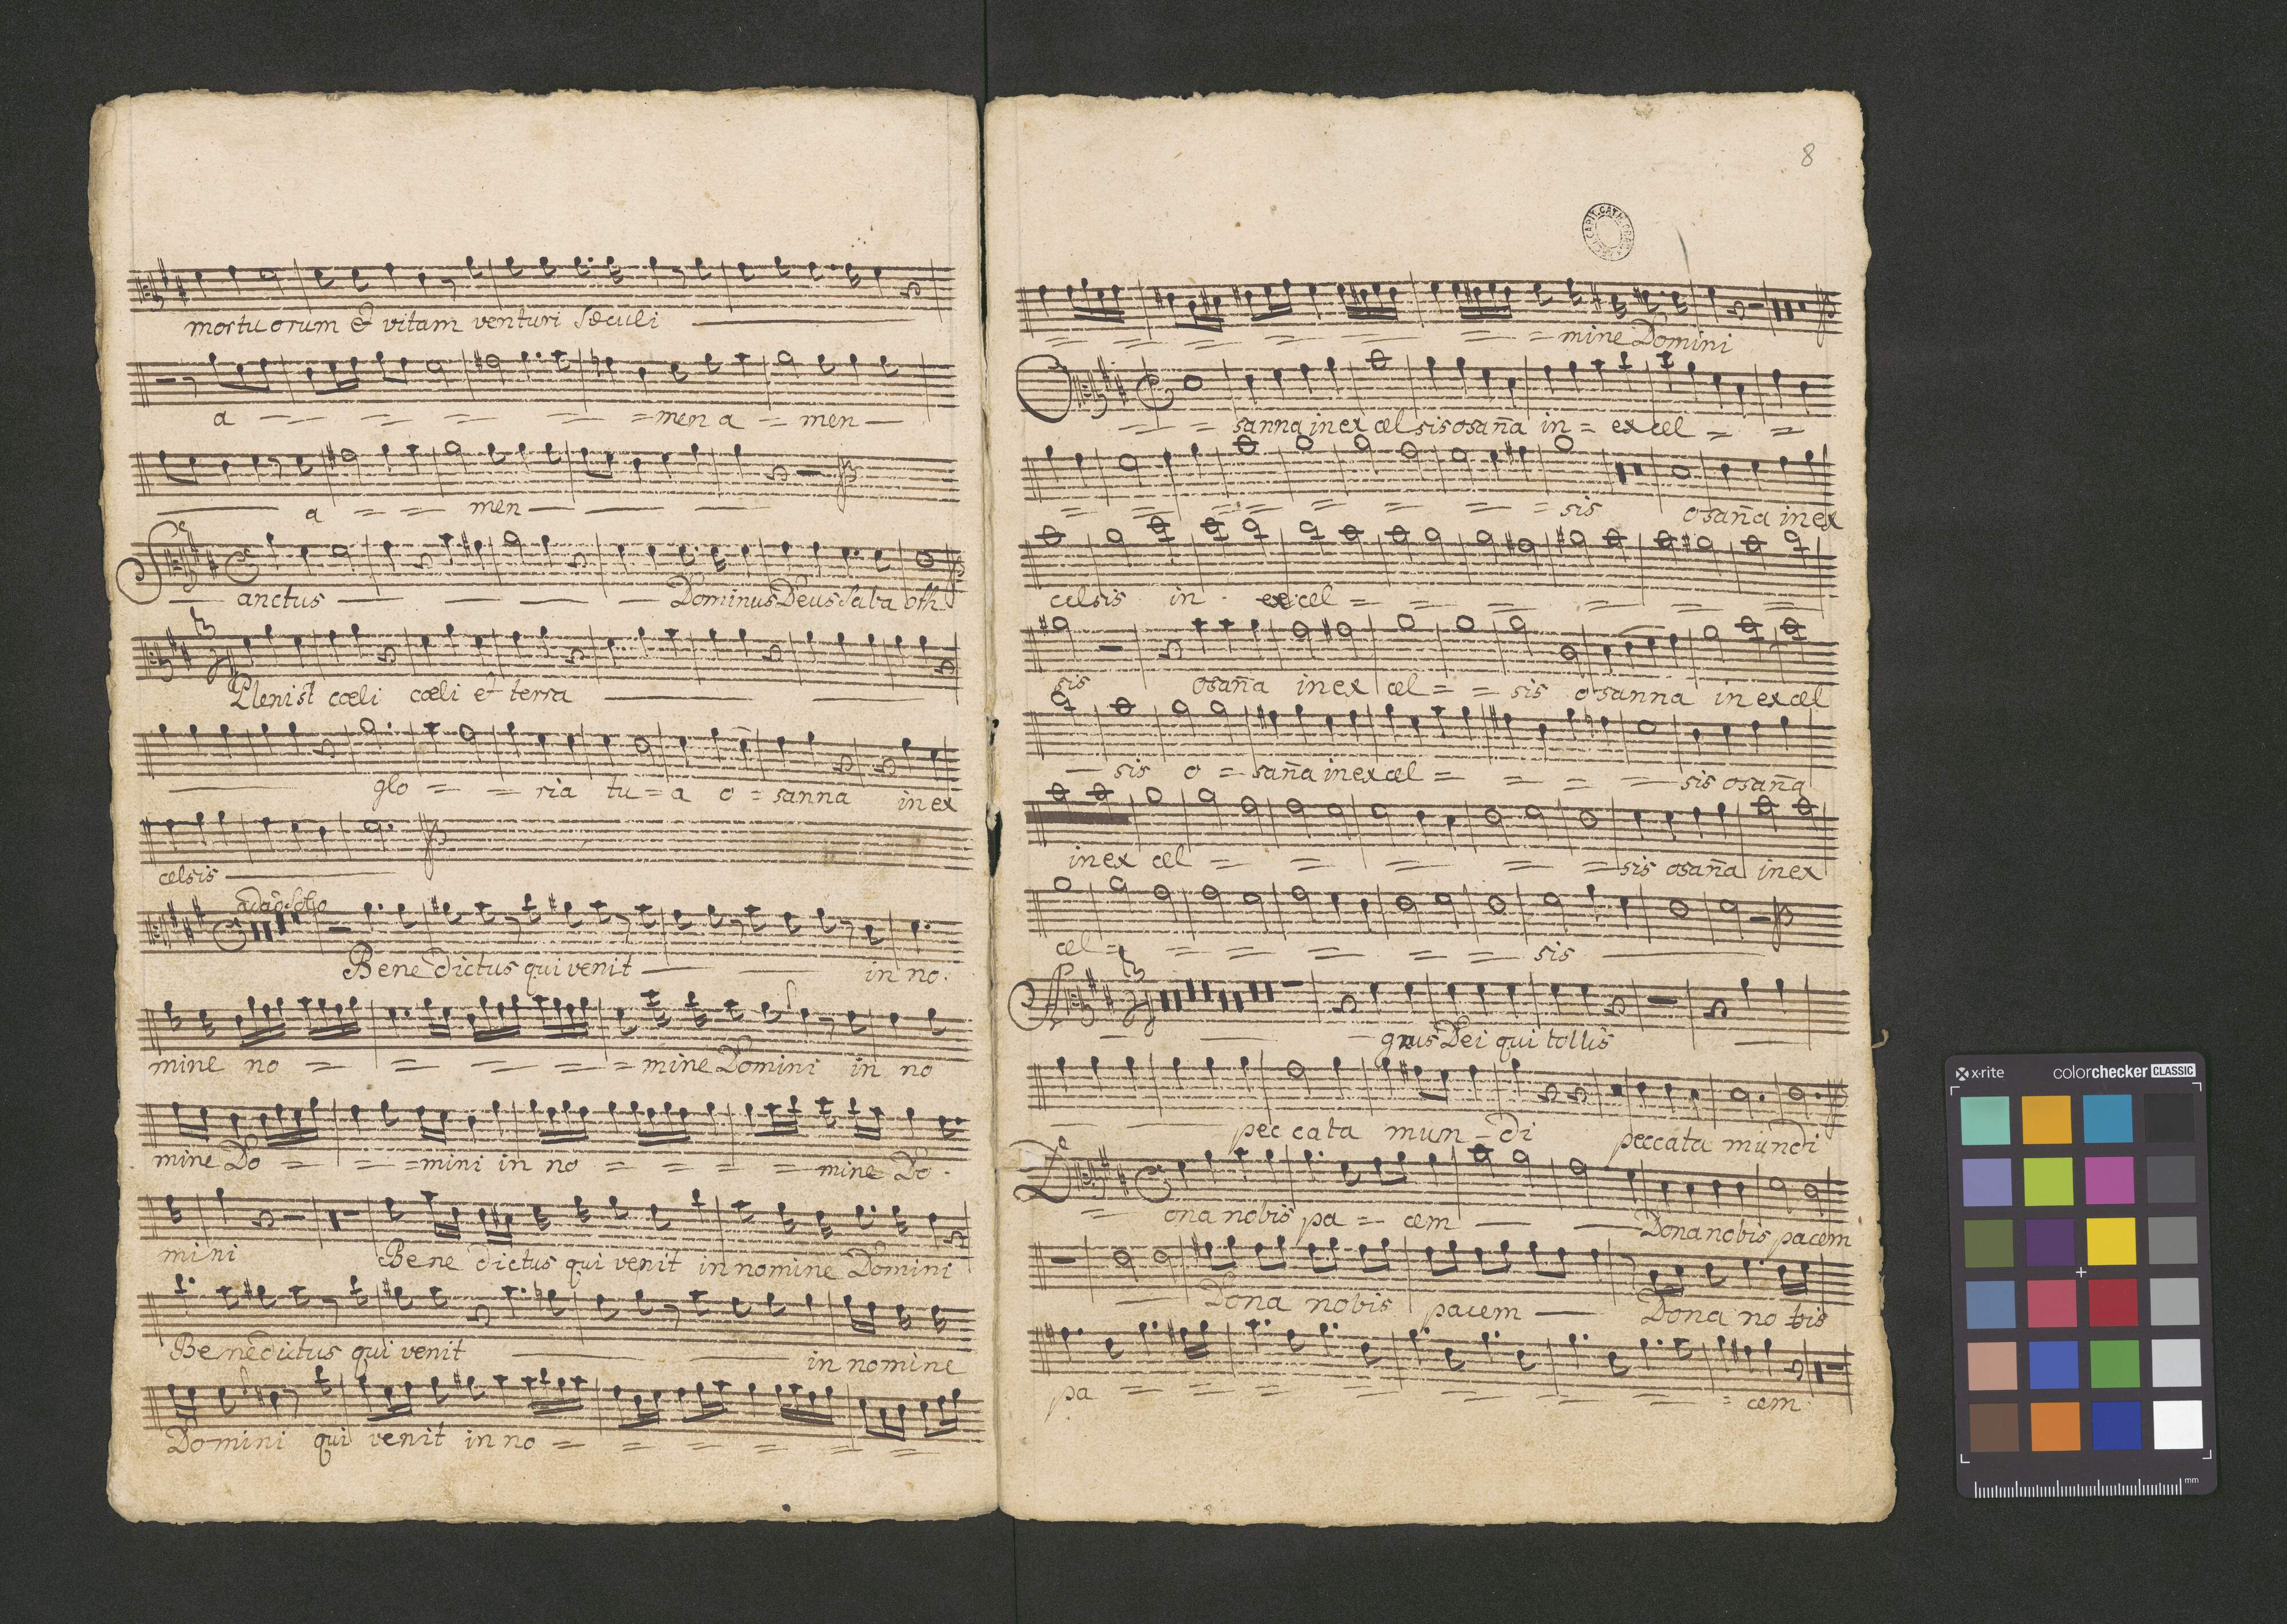 mortuorum & vitam venturi Sæculi
a = = = = = men a = men
a = = men
Sanctus Dominus Deus Saba oth
Pleni st cœli cœli et terra
glo = = ria tu = a o = sanna in ex
celsis
adag: Solo
Bene dictus qui venit in no.
mine no = = = = mine Domini in no
mine Do = = = mini in no = = = = mine Do.
mini Bene dictus qui venit in nomine Domini
Benedictus qui venit in nomine
Domini qui venit in no = = = = = =
8
= = = = = = = mine Domini
O = = sanna in ex cel sis osaña in = ex cel = =
= = = = = = = = sis osaña in ex
celsis in excel = = = = = =
sis osaña in ex cel = = sis o sanna in ex cel
sis o = saña in ex cel = = = sis osaña
in ex cel = = = = = sis osaña in ex
cel = = = = = = sis
Agnus Dei qui tollis
pec cata mun - di peccata mundi
Dona nobis pa = cem Dona nobis pacem
Dona nobis pacem Dona no bis
pa = = = = = = = = cem
x-rite colorchecker CLASSIC
mm